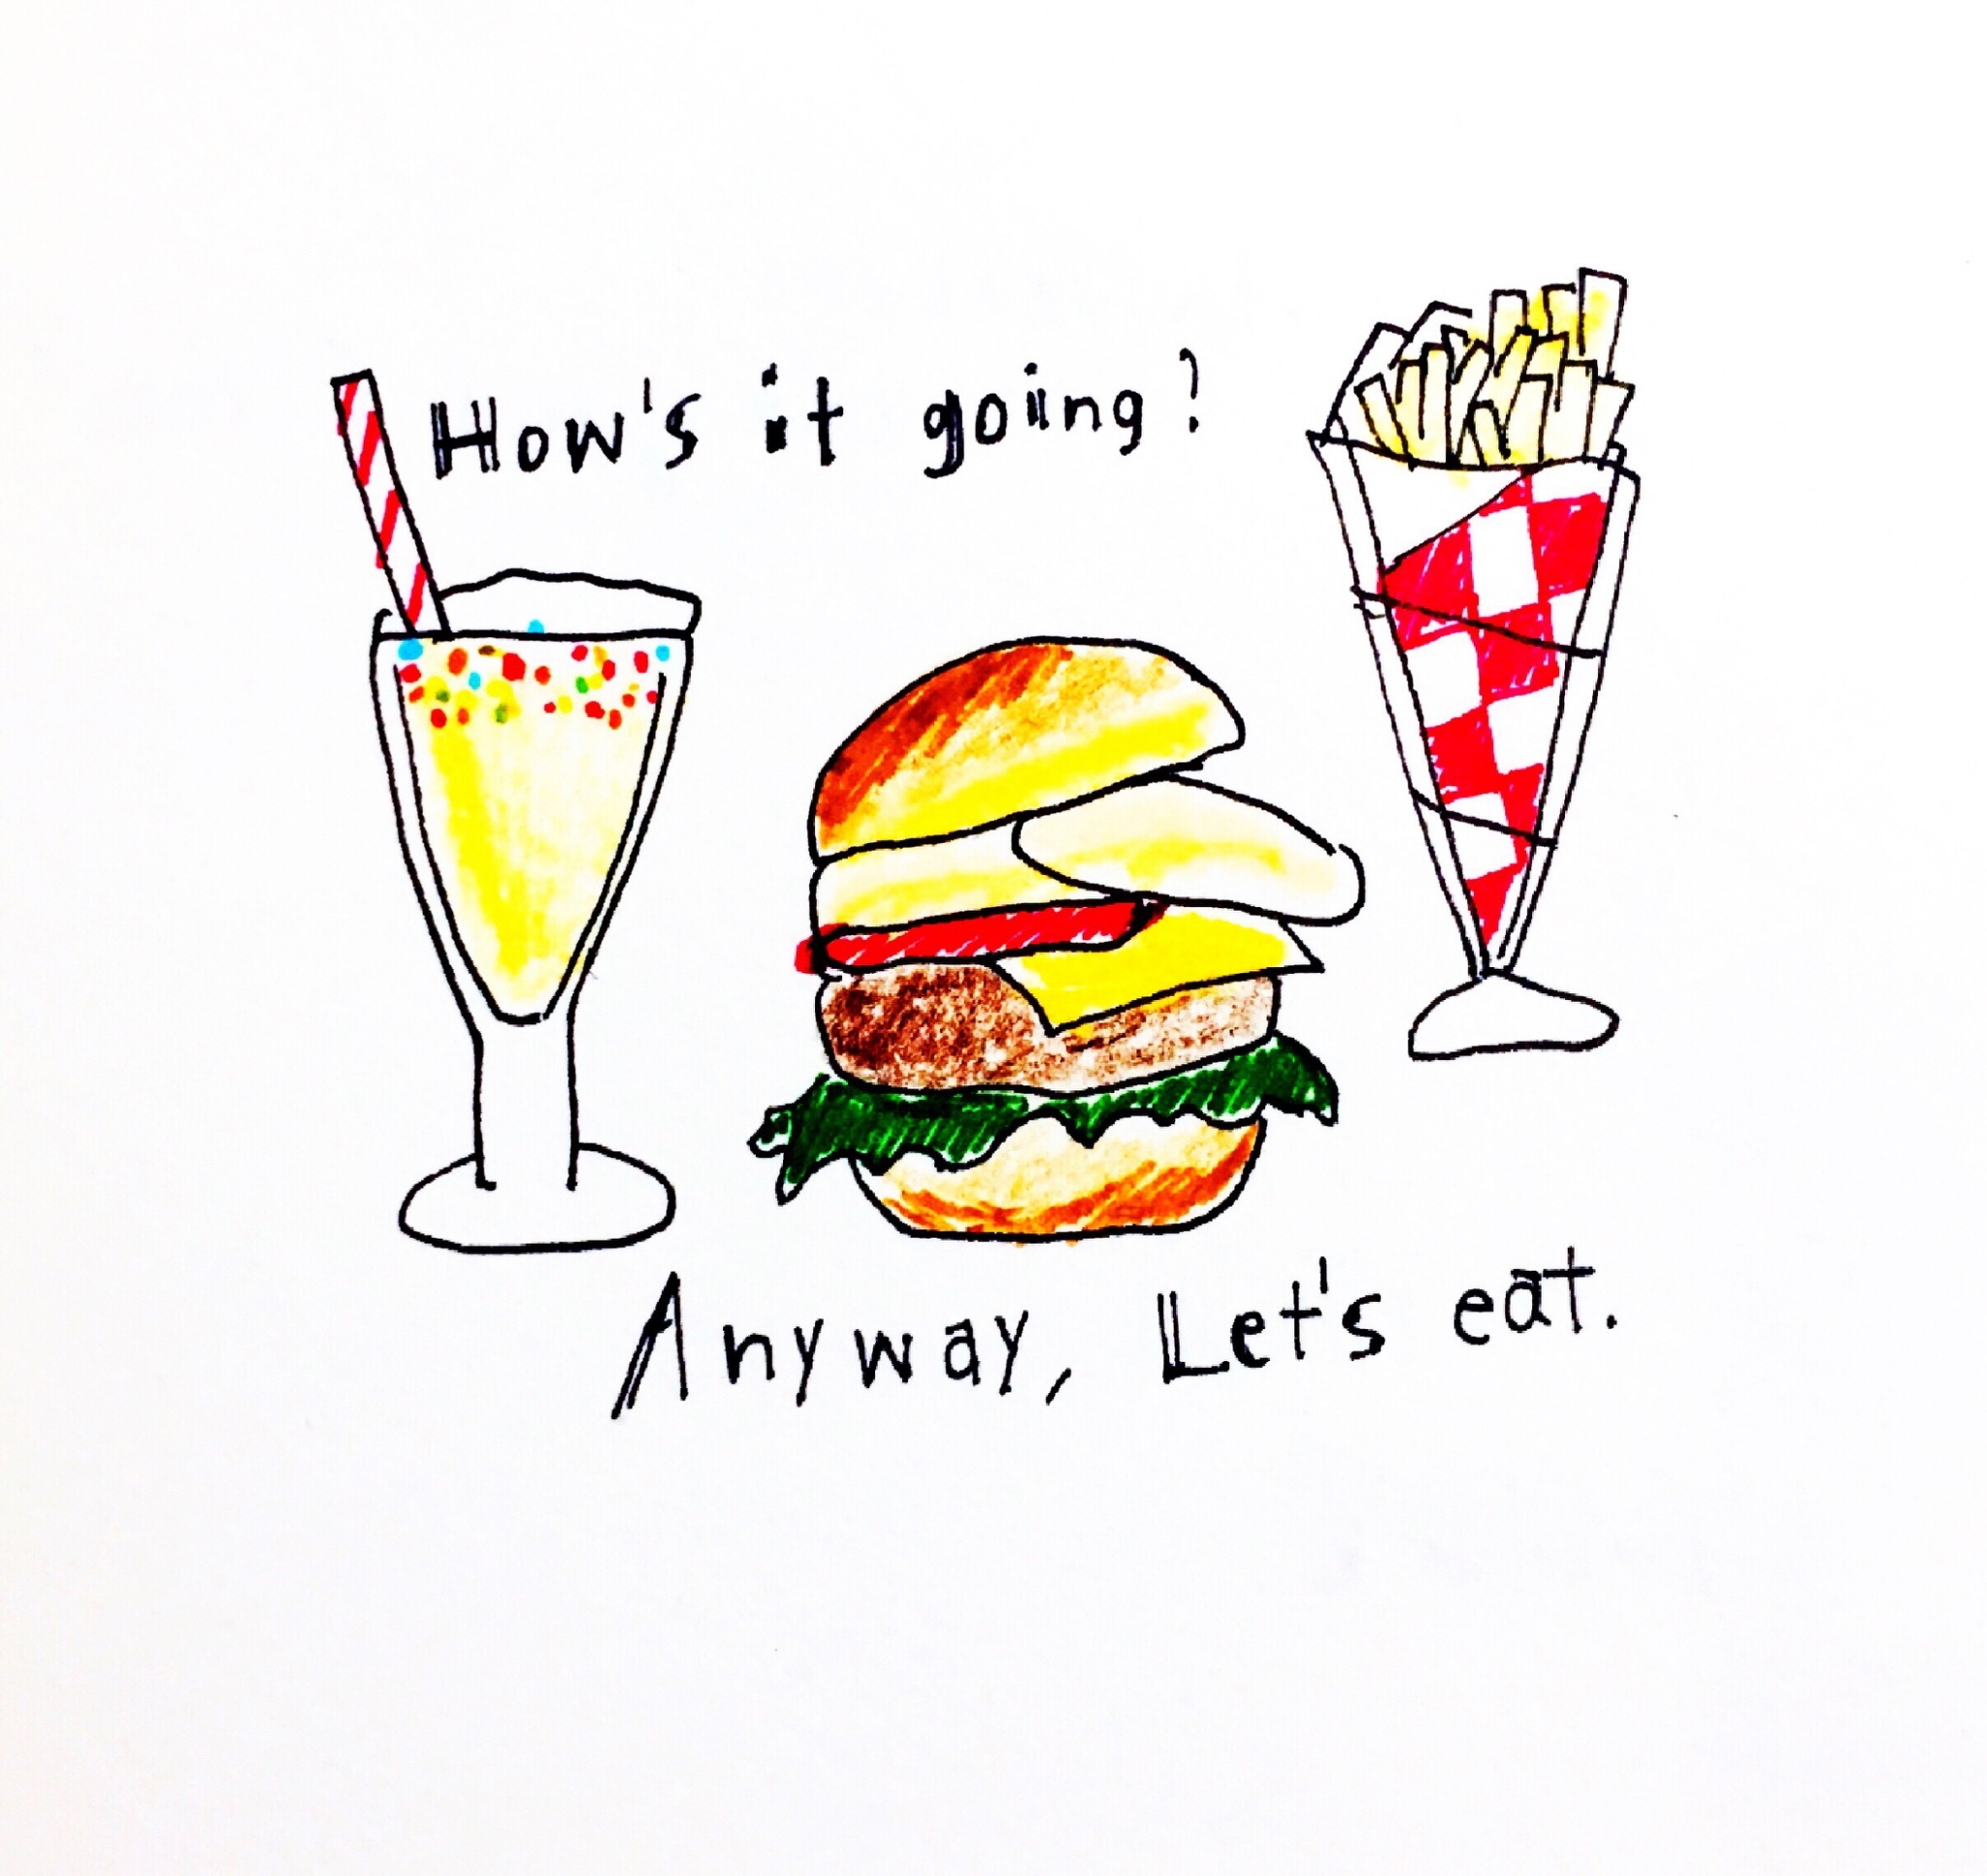 How's it going?
Anyway, Let's eat.